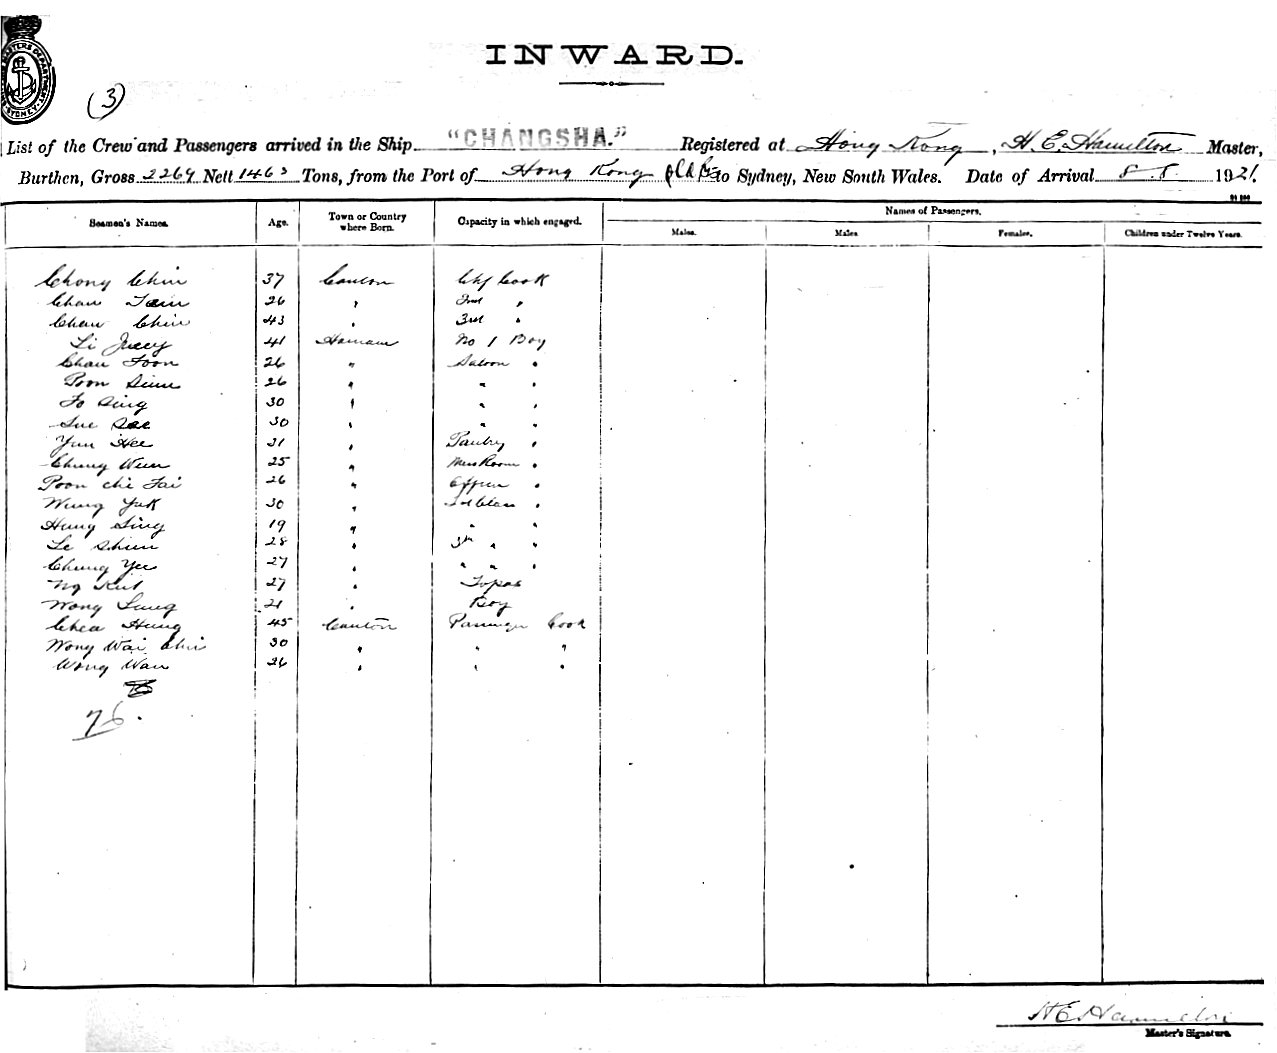 INWARD.
(3)
List of the Crew and Passengers arrived in the Ship "CHANGSHA." Registered at Hong Kong, H. E. Hamilton Master,
Burthen, Gross 2269 Nett 1463 Tons, from the Port of Hong Kong to Sydney, New South Wales. Date of Arrival 8.8. 1921.
Names of Passengers.
Seamen's Names. Age. Town or Country where Born. Capacity in which engaged. Males. Males Females. Children under Twelve Years.
Chong Chin 37 Canton Chf Cook
Chan 26 " 2nd "
Chan Chin 43 " 3rd "
Li 41 No 1 Boy
Chan Foon 26 " Saloon "
Poon 26 " " "
Fo Sing 30 " " "
Sue See 30 " " "
Yun Hee 31 " Pantry "
Chung Wun 25 " Mess Room "
Poon Chi Fai 26 " Officer "
Wung Yuk 30 " 1st Class "
Hung Sing 19 " " "
Le Shun 28 " 3rd " "
Chung Yee 27 " " " "
Ng 27 " Topas
Wong Sung 21 " Boy
Chea Hung 45 Canton Passenger Cook
Wong Wai Chi 30 " " "
Wong Wan 26 " " "
76.
H E Hamilton
Master's Signature.